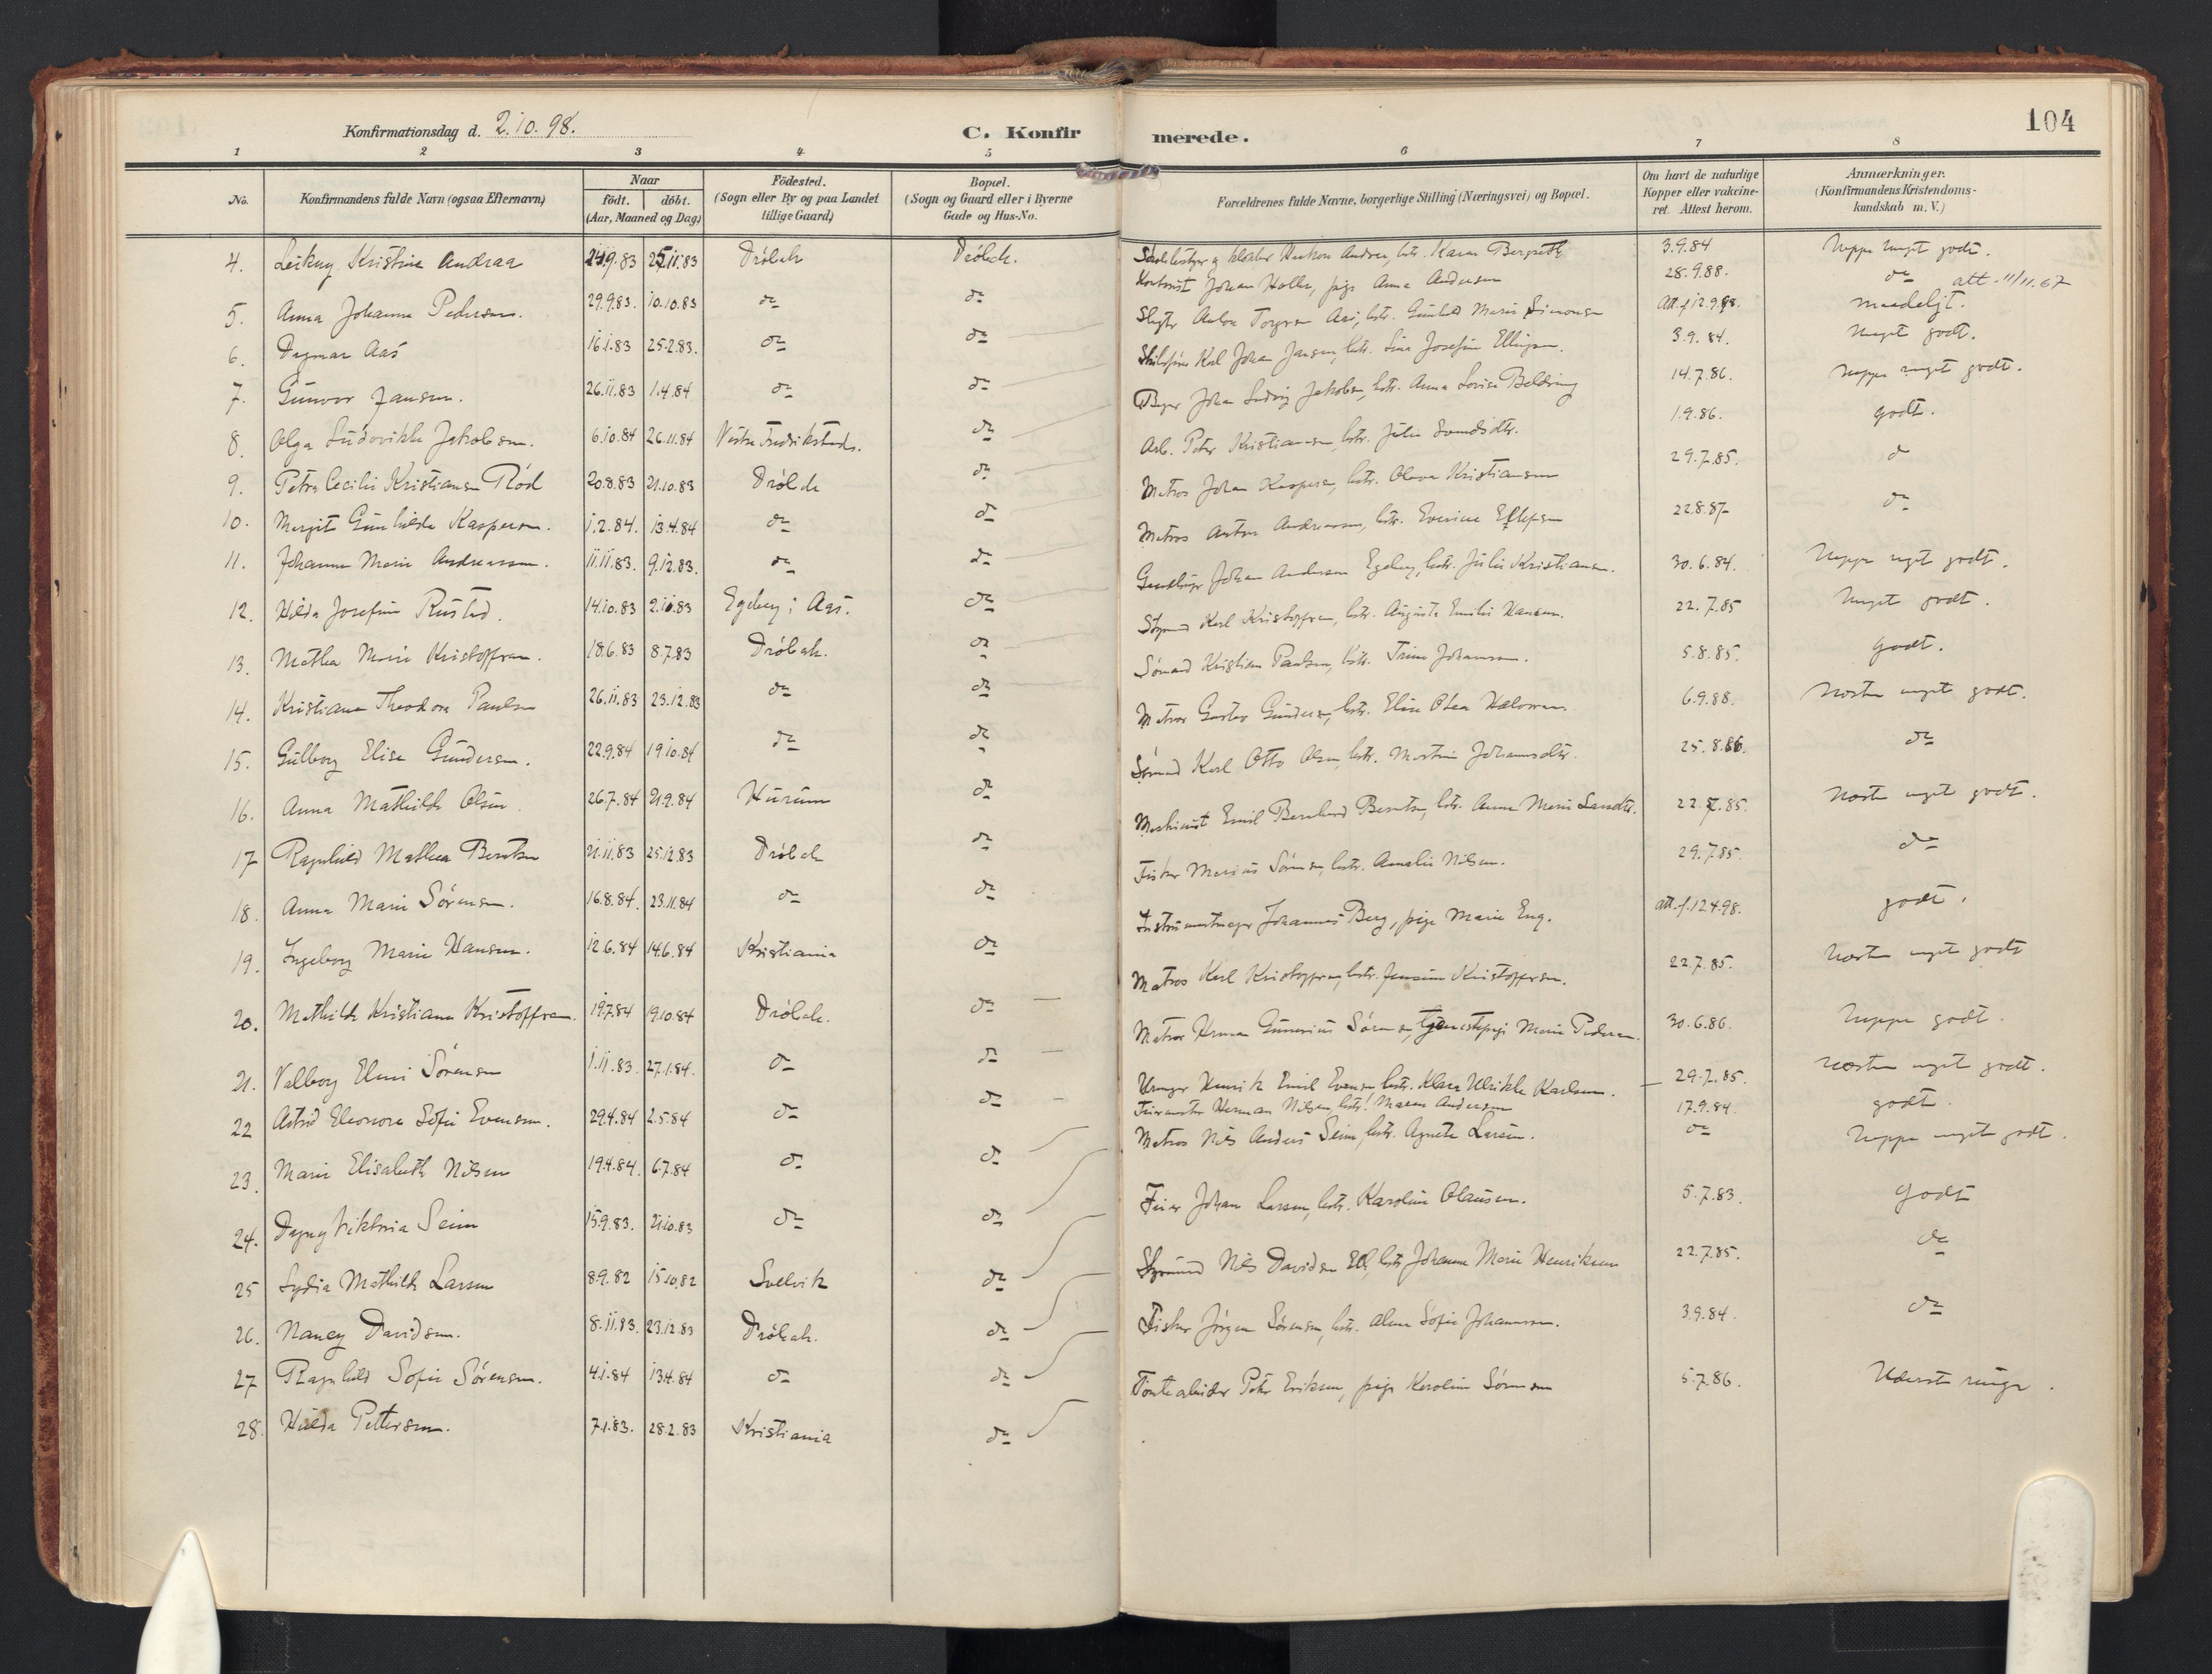 Konfirmationsdag d. 2.10.98.
C. Konfirmerede.
104
1 2 3 4 5 6 7 8
No. Konfirmandens fulde Navn (ogsaa Efternavn) Naar födt. döbt. (Aar, Maaned og Dag) Födested. (Sogn eller By og paa Landet tillige Gaard) Bopæl. (Sogn og Gaard eller i Byerne Gade og Hus-No. Forældrenes fulde Navne, borgerlige Stilling (Næringsvei) og Bopæl. Om havt de naturlige Kopper eller vakcineret. Attest herom. Anmærkninger. (Konfirmandens Kristendomskundskab m. V.)
4. Kristine Andrea 24.9.83 25.11.83 Dröbak Dröbak. 3.9.84 Neppe meget godt.
5. Anna Johanne Pedersen. 29.9.83. 10.10.83 do do Johan Holter, pige Anna Andersen 28.9.88. do att. 11/11.67
6. Dagmar Aas 16.1.83 25.2.83. do do Anton Torgersen Aas, hstr. Gunhild Marie Simonsen Att. f. 12.9.98. maadeligt.
7. Gunvor Jansen. 26.11.83 1.4.84 do do Karl Johan Jansen, hstr. Lina Josefine Ellingsen. 3.9.84. meget godt.
8. Olga Ludovikke Jakobsen. 6.10.84 26.11.84 Vestre Fredrikstads. do Johan Ludvig Jakobsen, hstr. Anna Lovise 14.7.86. neppe meget godt.
9. Petra Cecilie Kristiansen Röd 20.8.83 21.10.83 Dröbak do Arb. Peter Kristiansen, hstr. Julie 1.9.86. godt.
10. Margit Gunhilda Kaspersen. 1.2.84. 13.4.84 do do Matros Johan Kaspersen, hstr. Olava Kristiansen 29.7.85. do
11. Johanne Marie Andreassen. 11.11.83. 9.12.83. do do Matros Anton Andreassen, hstr. Evensine 22.8.87 do
12. Hilda Josefine Rustad. 14.10.83 2.10.83 Egeberg i Aas. do Johan Andersen Egeberg, hstr. Julie Kristiansen. 30.6.84. Neppe meget godt.
13. Mathea Marie Kristoffersen. 18.6.83 8.7.83 Dröbak. do Karl Kristoffersen, hstr. Augusta Emilie Hansen. 22.7.85 Meget godt.
14. Kristiane Theodora Paulsen 26.11.83 23.12.83 do do Sömand Kristian Paulsen, hstr. Trine Johannesen. 5.8.85. godt.
15. Gulborg Elise Gundersen. 22.9.84 19.10.84 do do Matros Gustav Gundersen, hstr. Elise Olea 6.9.88. Næsten meget godt.
16. Anna Mathilde Olsen 26.7.84 21.9.84 Hurum do Sömand Karl Otto Olsen, hstr. Martine Johannesdtr. 25.8.86. do
17 Ragnhild Mathea Berntsen 21.11.83 25.12.83 Dröbak do Maskinist Emil Bernhard Berntsen, hstr. Anna Marie 22.7.85. Næsten meget godt.
18. Anna Marie Sörensen. 16.8.84. 23.11.84 do do Fisker Marius Sörensen, hstr. Amalie Nilsen. 29.7.85. do
19. Ingeborg Marie Hansen. 12.6.84 14.6.84 Kristiania do Instrumentmager Johannes Berg, pige Marie Eng. att. f. 12.4.98. godt.
20. Mathilde Kristiane Kristoffersen. 19.7.84 19.10.84 Dröbak. do Matros Karl Kristoffersen, hstr. Jensine Kristoffersen. 22.7.85. Næsten meget godt
21. Valborg Elvine Sörensen 1.11.83. 27.1.84. do do Matros Herman Gunerius Sörensen, tjenestepige Marie Pedersen. 30.6.86. Neppe godt.
22 Astrid Eleonora Sofie Evensen. 29.4.84 2.5.84 do do Henrik Emil Evensen, hstr. Klara Ulrikke Karlsen. 29.7.85. næsten meget godt.
23. Marie Elisabeth Nilsen 19.4.84. 6.7.84 do do Herman Nilsen, hstr. Maren Andersen 17.9.84. godt.
24. Dagny Viktoria Seim 15.9.83. 21.10.83 do do Matros Nils Anders Seim, hstr. Agnete Larsen. do Neppe meget godt.
25 Lydia Mathilde Larsen 8.9.82 15.10.82 Svelvik do Feier Johan Larsen, hstr. Karoline Olausen. 5.7.83. Godt
26. Nancy Davidsen. 8.11.83. 23.12.83 Dröbak. do Styrmand Nils Davidsen, hstr. Johanne Marie Henriksen 22.7.85. do
27 Ragnhild Sofie Sörensen. 4.1.84 13.4.84 do do Fisker Jörgen Sörensen, hstr. Alma Sofie Johannesen. 3.9.84. do
28. Hilda Pettersen. 7.1.83. 28.2.83 Kristiania do Peter Eriksen, pige Karoline Sörensen 5.7.86. Yderst ringe.